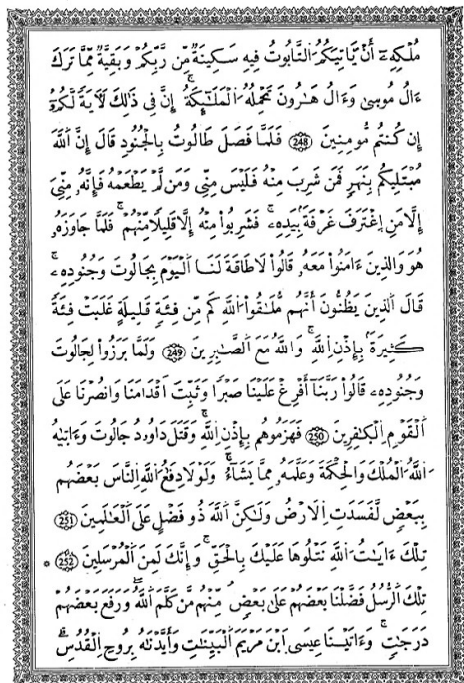 مُلْكِهِۦٓ أَنْ يَّاتِيَكُمُ التَّابُوتُ فِيهِ سَكِينَةٌ مِّن رَّبِّكُمْ وَبَقِيَّةٌ مِّمَّا تَرَكَ
ءَالُ مُوسىٰ وَءَالُ هَٰرُونَ تَحْمِلُهُ الْمَلَٰٓئِكَةُ إِنَّ فِي ذَٰلِكَ لَأٓيَةً لَّكُمُۥٓ
إِن كُنتُم مُّومِنِينَ (248) فَلَمَّا فَصَلَ طَالُوتُ بِالْجُنُودِ قَالَ إِنَّ اَللَّهَ
مُبْتَلِيكُم بِنَهَرٍ فَمَن شَرِبَ مِنْهُ فَلَيْسَ مِنِّي وَمَن لَّمْ يَطْعَمْهُ فَإِنَّهُۥ مِنِّيَ
إِلَّا مَنِ اِغْتَرَفَ غَرْفَةً بِيَدِهِۦ فَشَرِبُواْ مِنْهُ إِلَّا قَلِيلًا مِّنْهُمْ فَلَمَّا جَاوَزَهُۥ
هُوَ وَالذِينَ ءَامَنُواْ مَعَهُۥ قَالُواْ لَا طَاقَةَ لَنَا اَلْيَوْمَ بِجَالُوتَ وَجُنُودِهِۦ
قَالَ اَلذِينَ يَظُنُّونَ أَنَّهُم مُّلَٰقُواْ اللَّهِ كَم مِّن فِئَةٍ قَلِيلَةٍ غَلَبَتْ فِئَةً
كَثِيرَةً بِإِذْنِ اِللَّهِ وَاللَّهُ مَعَ الصَّٰبِرِينَ (249) وَلَمَّا بَرَزُواْ لِجَالُوتَ
وَجُنُودِهِۦ قَالُواْ رَبَّنَا أَفْرِغْ عَلَيْنَا صَبْرًا وَثَبِّتَ اَقْدَامَنَا وَانصُرْنَا عَلَى
اَلْقَوْمِ اِلْكَٰفِرِينَ (250) فَهَزَمُوهُم بِإِذْنِ اِللَّهِ وَقَتَلَ دَاوُۥدُ جَالُوتَ وَءَاتَىٰهُ
اَللَّهُ الْمُلْكَ وَالْحِكْمَةَ وَعَلَّمَهُۥ مِمَّا يَشَآءُ وَلَوْلَا دِفَٰعُ اللَّهِ اِلنَّاسَ بَعْضَهُم
بِبَعْضٍ لَّفَسَدَتِ اِلَارْضُ وَلَٰكِنَّ اَللَّهَ ذُو فَضْلٍ عَلَى اَلْعَٰلَمِينَ (251)
تِلْكَ ءَايَٰتُ اُللَّهِ نَتْلُوهَا عَلَيْكَ بِالْحَقِّ وَإِنَّكَ لَمِنَ اَلْمُرْسَلِينَ (252) *
تِلْكَ اَلرُّسُلُ فَضَّلْنَا بَعْضَهُمْ عَلَىٰ بَعْضٍ مِّنْهُم مَّن كَلَّمَ اَللَّهُ وَرَفَعَ بَعْضَهُمْ
دَرَجَٰتٍ وَءَاتَيْنَا عِيسَى اَبْنَ مَرْيَمَ اَلْبَيِّنَٰتِ وَأَيَّدْنَٰهُ بِرُوحِ اِلْقُدُسِ